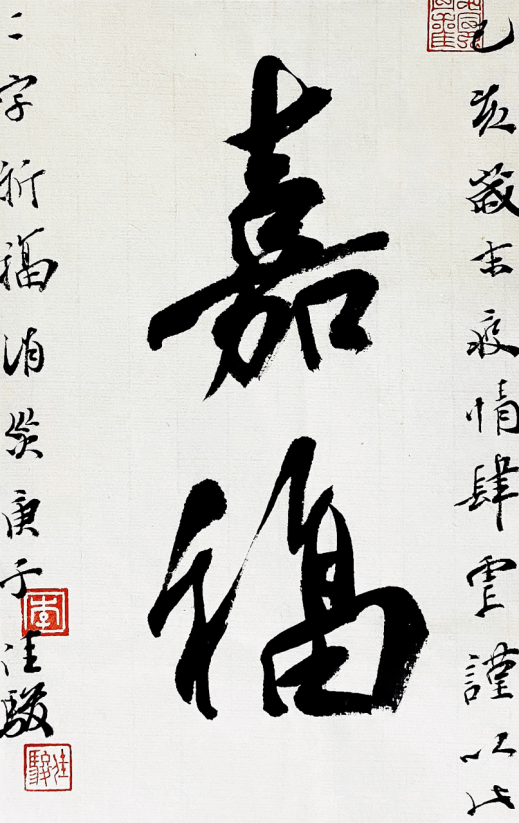 己亥歲末疫情肆虐謹以此
嘉福
二字祈福消災庚子汪駿